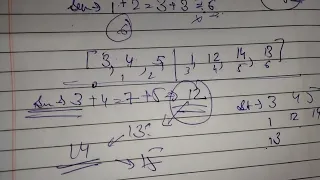 1+2=3+3=6
6
[3, 4, 5 | 1, 12, 14, 13]
1 2 3 4 5 6
Ans → 3+4=7+5=12
13
14 → 15
3 4 5
1 12 14
13